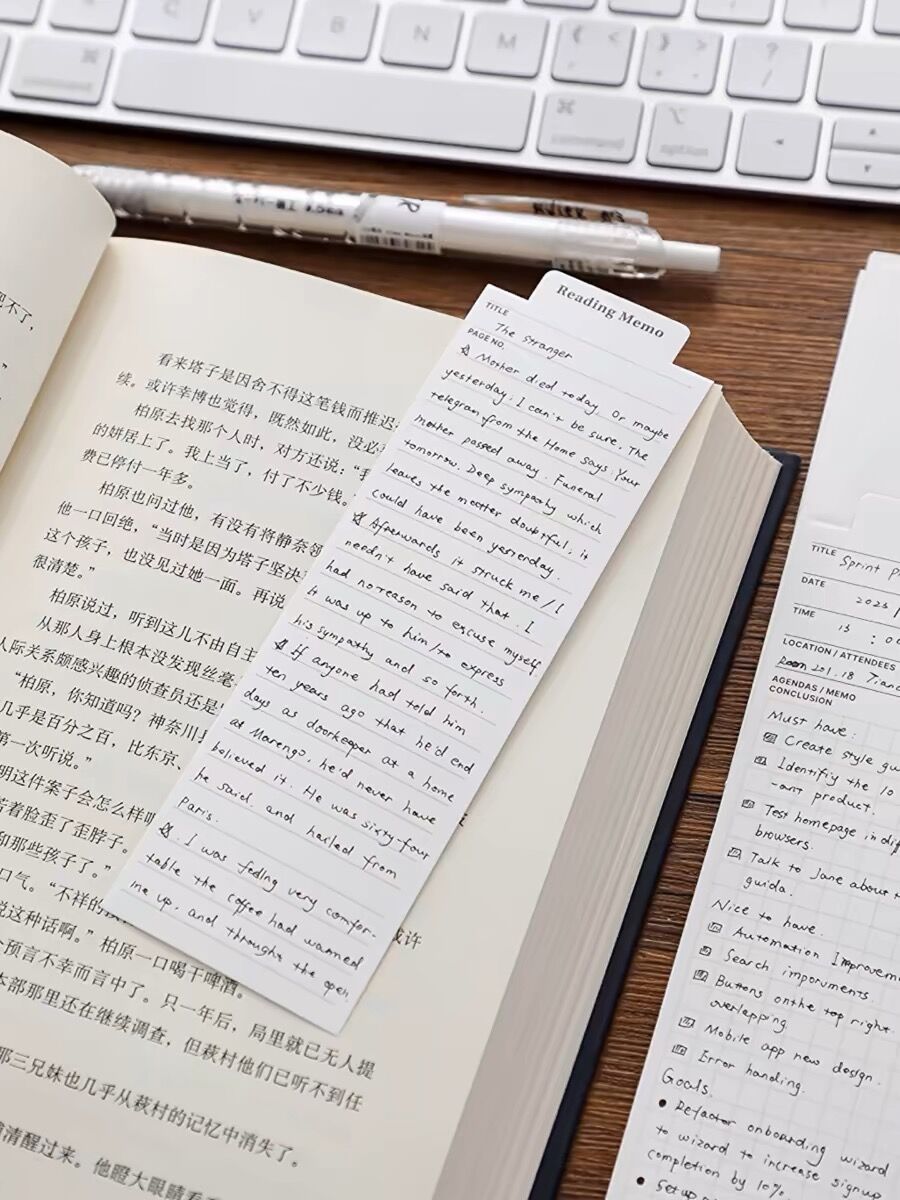 V
B
N
M
<
>
?
/
command
⌘
command
⌥
option
Reading Memo
TITLE
The Stranger
PAGE NO.
☆ Mother died today. Or maybe
yesterday; I can't be sure. The
telegram from the Home says: Your
mother passed away. Funeral
tomorrow. Deep sympathy which
leaves the matter doubtful; it
could have been yesterday.
☆ Afterwards it struck me / I
needn't have said that. I
had no reason to excuse myself.
It was up to him / to express
his sympathy and so forth.
☆ If anyone had told him
ten years ago that he'd end
days as doorkeeper at a home
at Marengo, he'd never have
believed it. He was sixty-four
he said. and hailed from
Paris.
☆. I was feeling very comfor-
table the coffee had warmed
me up, and throught the open
看来塔子是因舍不得这笔钱而推迟
续。或许幸博也觉得，既然如此，没必
柏原去找那个人时，对方还说：“我
的姘居上了。我上当了，付了不少钱。
费已停付一年多。
柏原也问过他，有没有将静奈领
他一口回绝，“当时是因为塔子坚决
这个孩子，也没见过她一面。再说
很清楚。”
柏原说过，听到这儿不由自主
从那人身上根本没发现丝毫
人际关系颇感兴趣的侦查员还是
“柏原，你知道吗？神奈川县
几乎是百分之百，比东京、
第一次听说。”
明这件案子会怎么样呢
着脸歪了歪脖子。
和那些孩子了。”
口气。“不祥的
或许
说这种话啊。”柏原一口喝干啤酒。
预言不幸而言中了。只一年后，局里就已无人提
本部那里还在继续调查，但萩村他们已听不到任
那三兄妹也几乎从萩村的记忆中消失了。
清醒过来。他瞪大眼睛看
不了，
TITLE
Sprint
DATE
2023 /
TIME
13 : 0
LOCATION / ATTENDEES
Room 201, 18
AGENDAS / MEMO
CONCLUSION
Must have:
Create style gu
Identifiy the 10
-ant product.
Test homepage in dif
browsers.
Talk to Jane about
guida.
Nice to have
Automation Improveme
Search imporuments.
Buttons on the top right
overlapping
Mobile app new design.
Error handing.
Goals.
• Refactor onboarding wizard
to wizard to increase signup
completion by 10%
• Setup